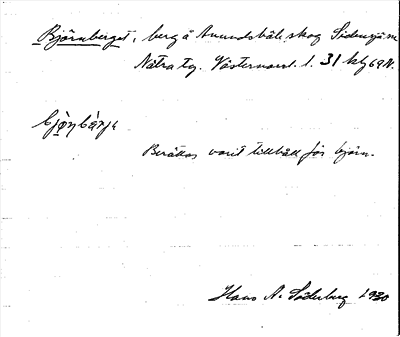 Björnberget, berg å Anundsböle skog Sidensjö sn
Nätra tg. Västernorrl. l. 31
Berättas varit tillhåll för björn.
Hans A. Söderberg 1930